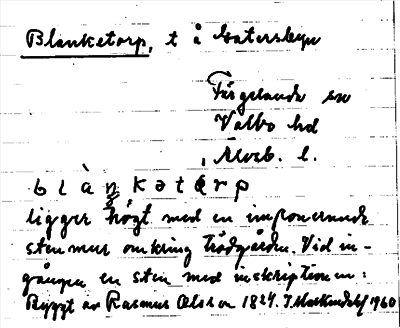 Blanketorp, t å
Färgelanda sn
Valbo hd
Älvsb. l.
blàŋkətɷrp
ligger högt med en imponerande
stenmur omkring trädgården. Vid in-
gången en sten med inskriptionen:
Byggt av Rasmus Olsson 1824. 1960